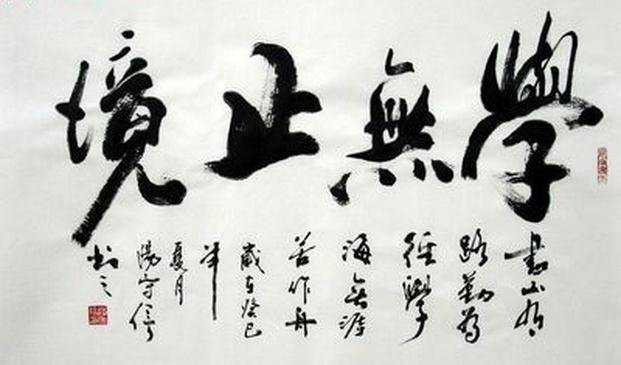 學無止境
書山有
路勤為
徑學
海無涯
苦作舟
歲在癸巳
年
夏月
書之